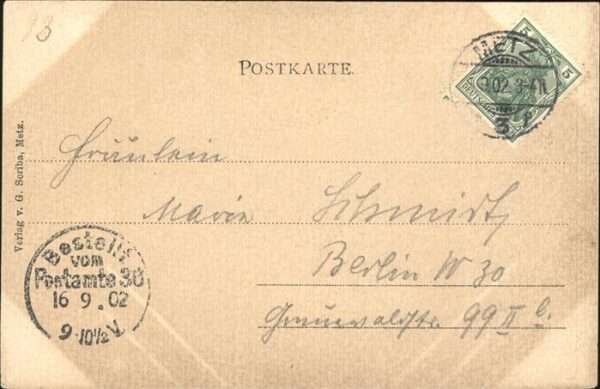 13
POSTKARTE.
5 5
METZ
.9.02 3-4N
3 f
Verlag v. G. Scriba, Metz.
Fräulein
Marie Schmidt
Berlin W 30
Grunewaldstr. 99 II l.
Bestellt
vom
Postamte 30
16 9 . 02
9-10½V.